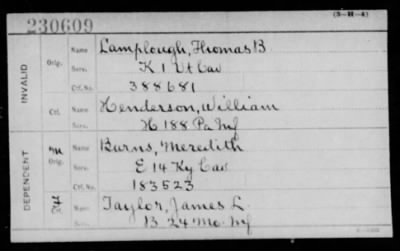 (3-H-4)
230609
INVALID
Orig.
Name Lamplough, Thomas B
Serv. K 1 Vt Cav
Ctf. No. 388681
Ctf.
Name Henderson, William
Serv. H 188 Pa Inf
DEPENDENT
M
Orig.
Name Burns, Meredith
Serv. E 14 Ky Cav
Ctf. No. 183523
Ctf.
Name Taylor, James L.
Serv. B 24 Mo. Inf